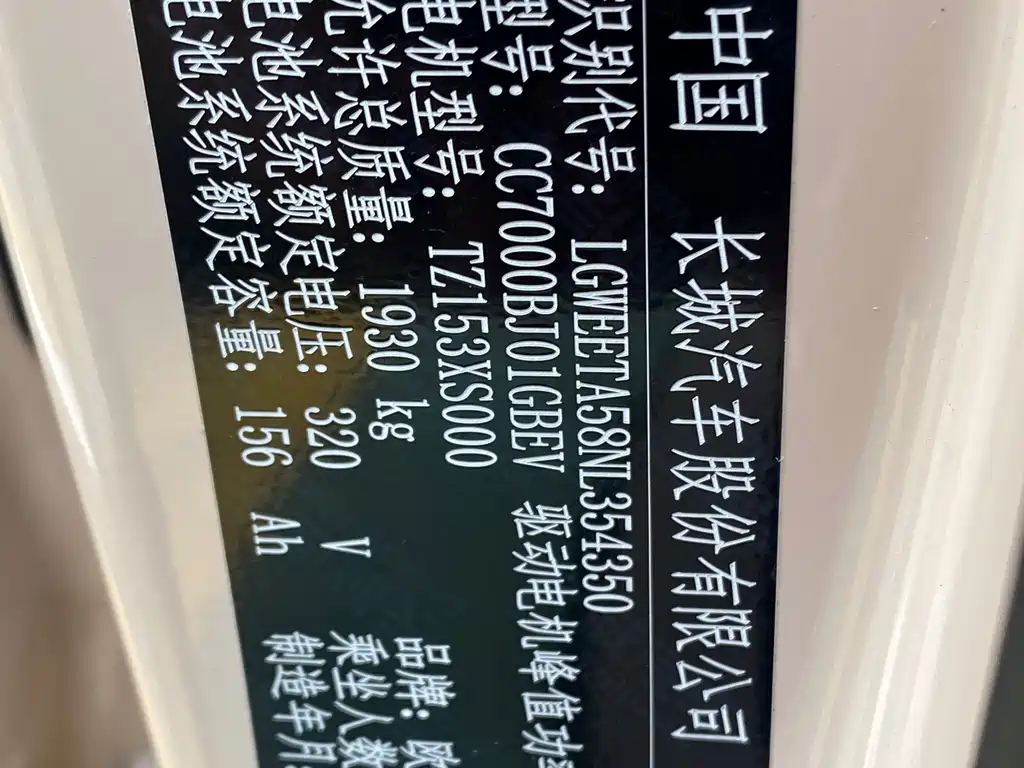 中国 长城汽车股份有限公司
识别代号: LGWEETA58NL354350
型号: CC7000BJ01GBEV 驱动电机峰值功
电机型号: TZ153XS000
允许总质量: 1930 kg 品牌: 欧
电池系统额定电压: 320 V 乘坐人数
电池系统额定容量: 156 Ah 制造年月